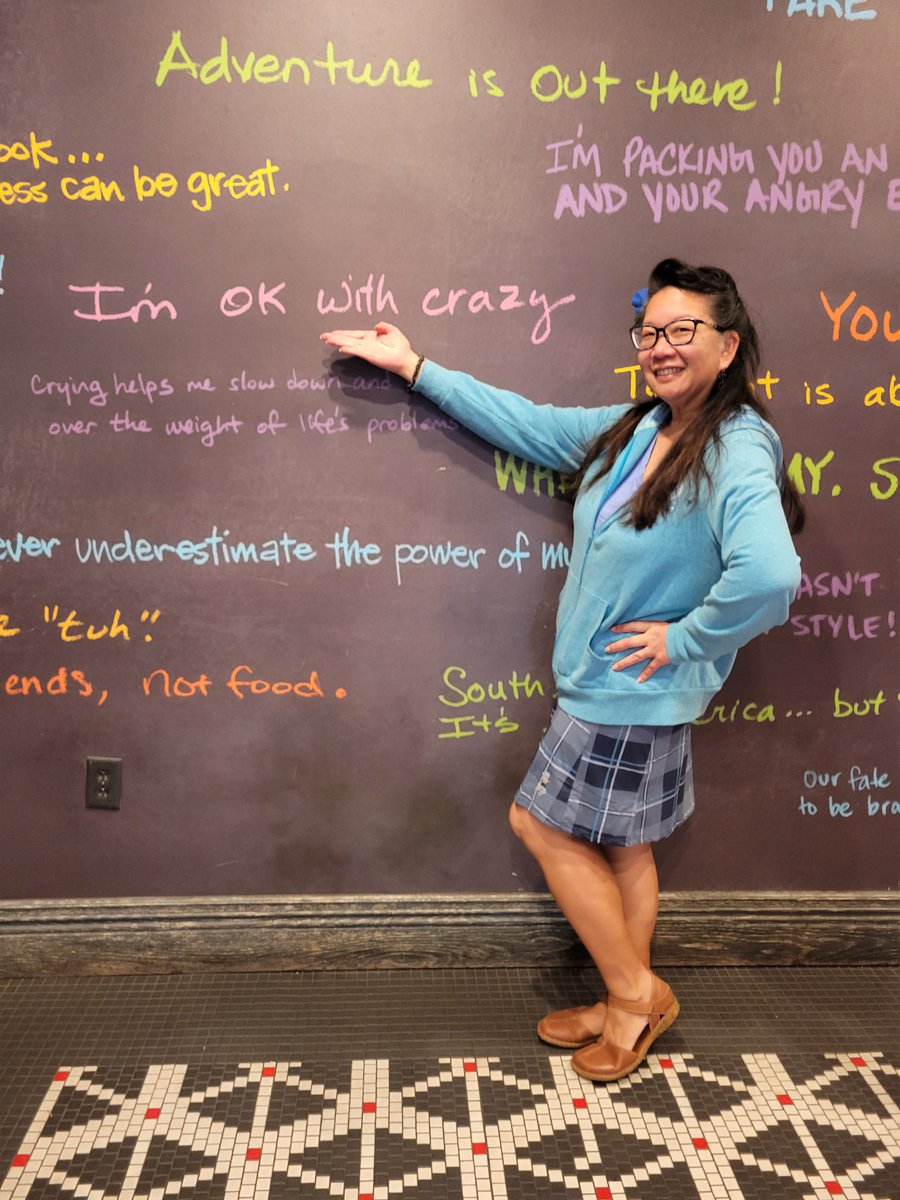 TAKE
Adventure is out there!
ook...
ess can be great.
I'M PACKING YOU AN
AND YOUR ANGRY E
!
I'm OK with crazy
You
Crying helps me slow down and
over the weight of life's problems
is ab
MY. S
ever underestimate the power of my
ASN'T
STYLE!
"tuh".
ends, not food.
South
It's erica... but
our fate
to be bra